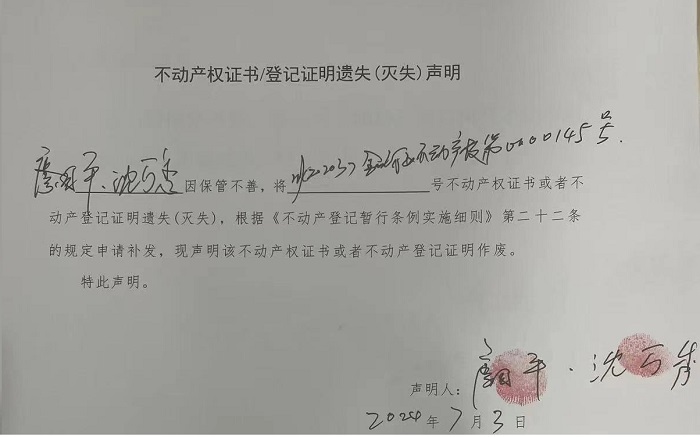 不动产权证书/登记证明遗失(灭失)声明
平、沈 因保管不善，将 不动产权第0000145号 号不动产权证书或者不
动产登记证明遗失(灭失)，根据《不动产登记暂行条例实施细则》第二十二条
的规定申请补发，现声明该不动产权证书或者不动产登记证明作废。
特此声明。
声明人： 国平、沈
2024年7月3日